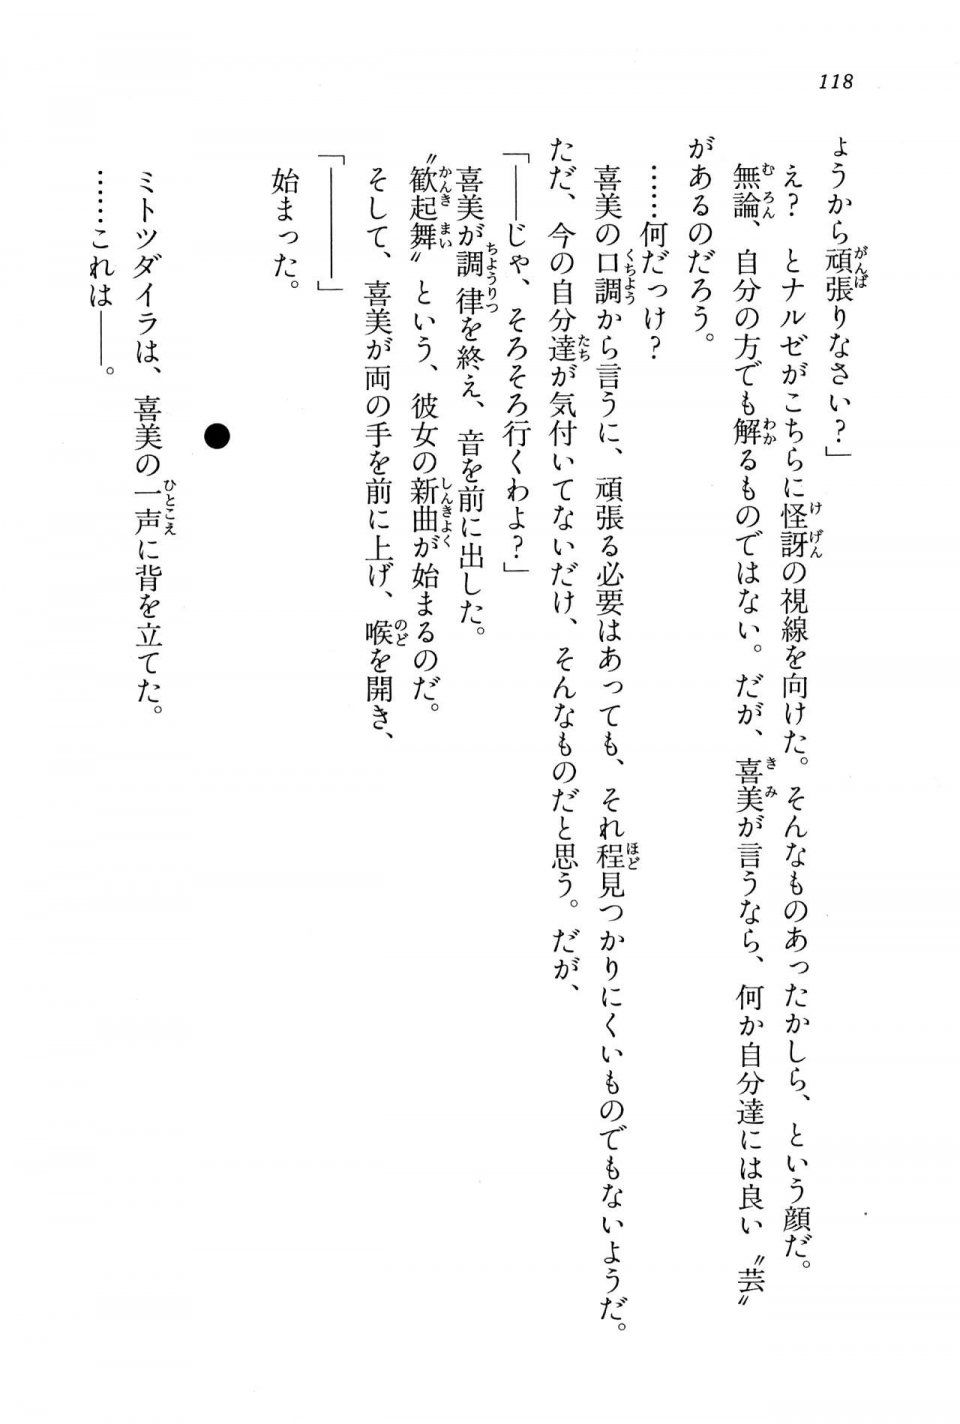 118
ょうから頑張りなさい？」
え？　とナルゼがこちらに怪訝の視線を向けた。そんなものあったかしら、という顔だ。
無論、自分の方でも解るものではない。だが、喜美が言うなら、何か自分達には良い〝芸〟
があるのだろう。
……何だっけ？
喜美の口調から言うに、頑張る必要はあっても、それ程見つかりにくいものでもないようだ。
ただ、今の自分達が気付いてないだけ、そんなものだと思う。だが、
「――じゃ、そろそろ行くわよ？」
喜美が調律を終え、音を前に出した。
〝歓起舞〟という、彼女の新曲が始まるのだ。
そして、喜美が両の手を前に上げ、喉を開き、
「――――」
始まった。
●
ミトツダイラは、喜美の一声に背を立てた。
……これは――。